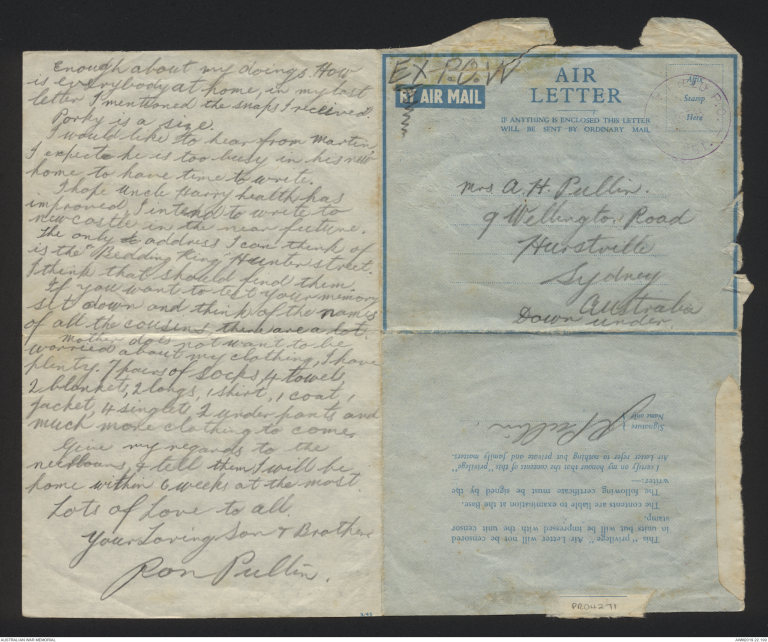 Enough about my doings. How
is everybody at home, in my last
letter I mentioned the snaps I received.
Porky is a size.
I would like to hear from Martin,
I expect he is too busy in his new
home to have time to write.
I hope uncle Harry health has
improved, I intend to write to
newcastle in the near future.
The only address I can think of
is the "Bedding King" Hunter street.
I think that should find them.
If you want to test your memory
sit down and think of the names
of all the cousins, there are a lot.
Mother does not want to be
worried about my clothing, I have
plenty. 7 pairs of socks, 4 towels
2 blankets, 2 longs, 1 shirt, 1 coat, 1
jacket, 4 singlets 2 under pants and
much more clothing to come.
Give my regards to the
neighbours, & tell them I will be
home within 6 weeks at the most
Lots of Love to all.
Your Loving Son & Brother
Ron Pullin.
3/45
EX-P.O.W
BY AIR MAIL
AIR
LETTER
IF ANYTHING IS ENCLOSED THIS LETTER
WILL BE SENT BY ORDINARY MAIL
Affix
Stamp
Here
Mrs A. H. Pullin.
9 Wellington Road
Hurstville
Sydney
Australia
Down under
This "privilege" Air Letter will not be censored
in but units will be impressed with the unit censor
stamp.
The contents are liable to examination at the Base.
The following certificate must be signed by the
writer:—
I certify on my honour that the contents of this "privilege"
Air Letter refer to nothing but private and family matters.
Signature
Name only
R Pullin
PR04271
AUSTRALIAN WAR MEMORIAL
AWM2018.22.192